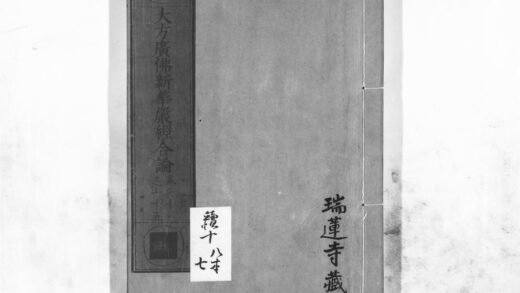 大方廣佛新華嚴經合論
瑞蓮寺藏
十八本
七